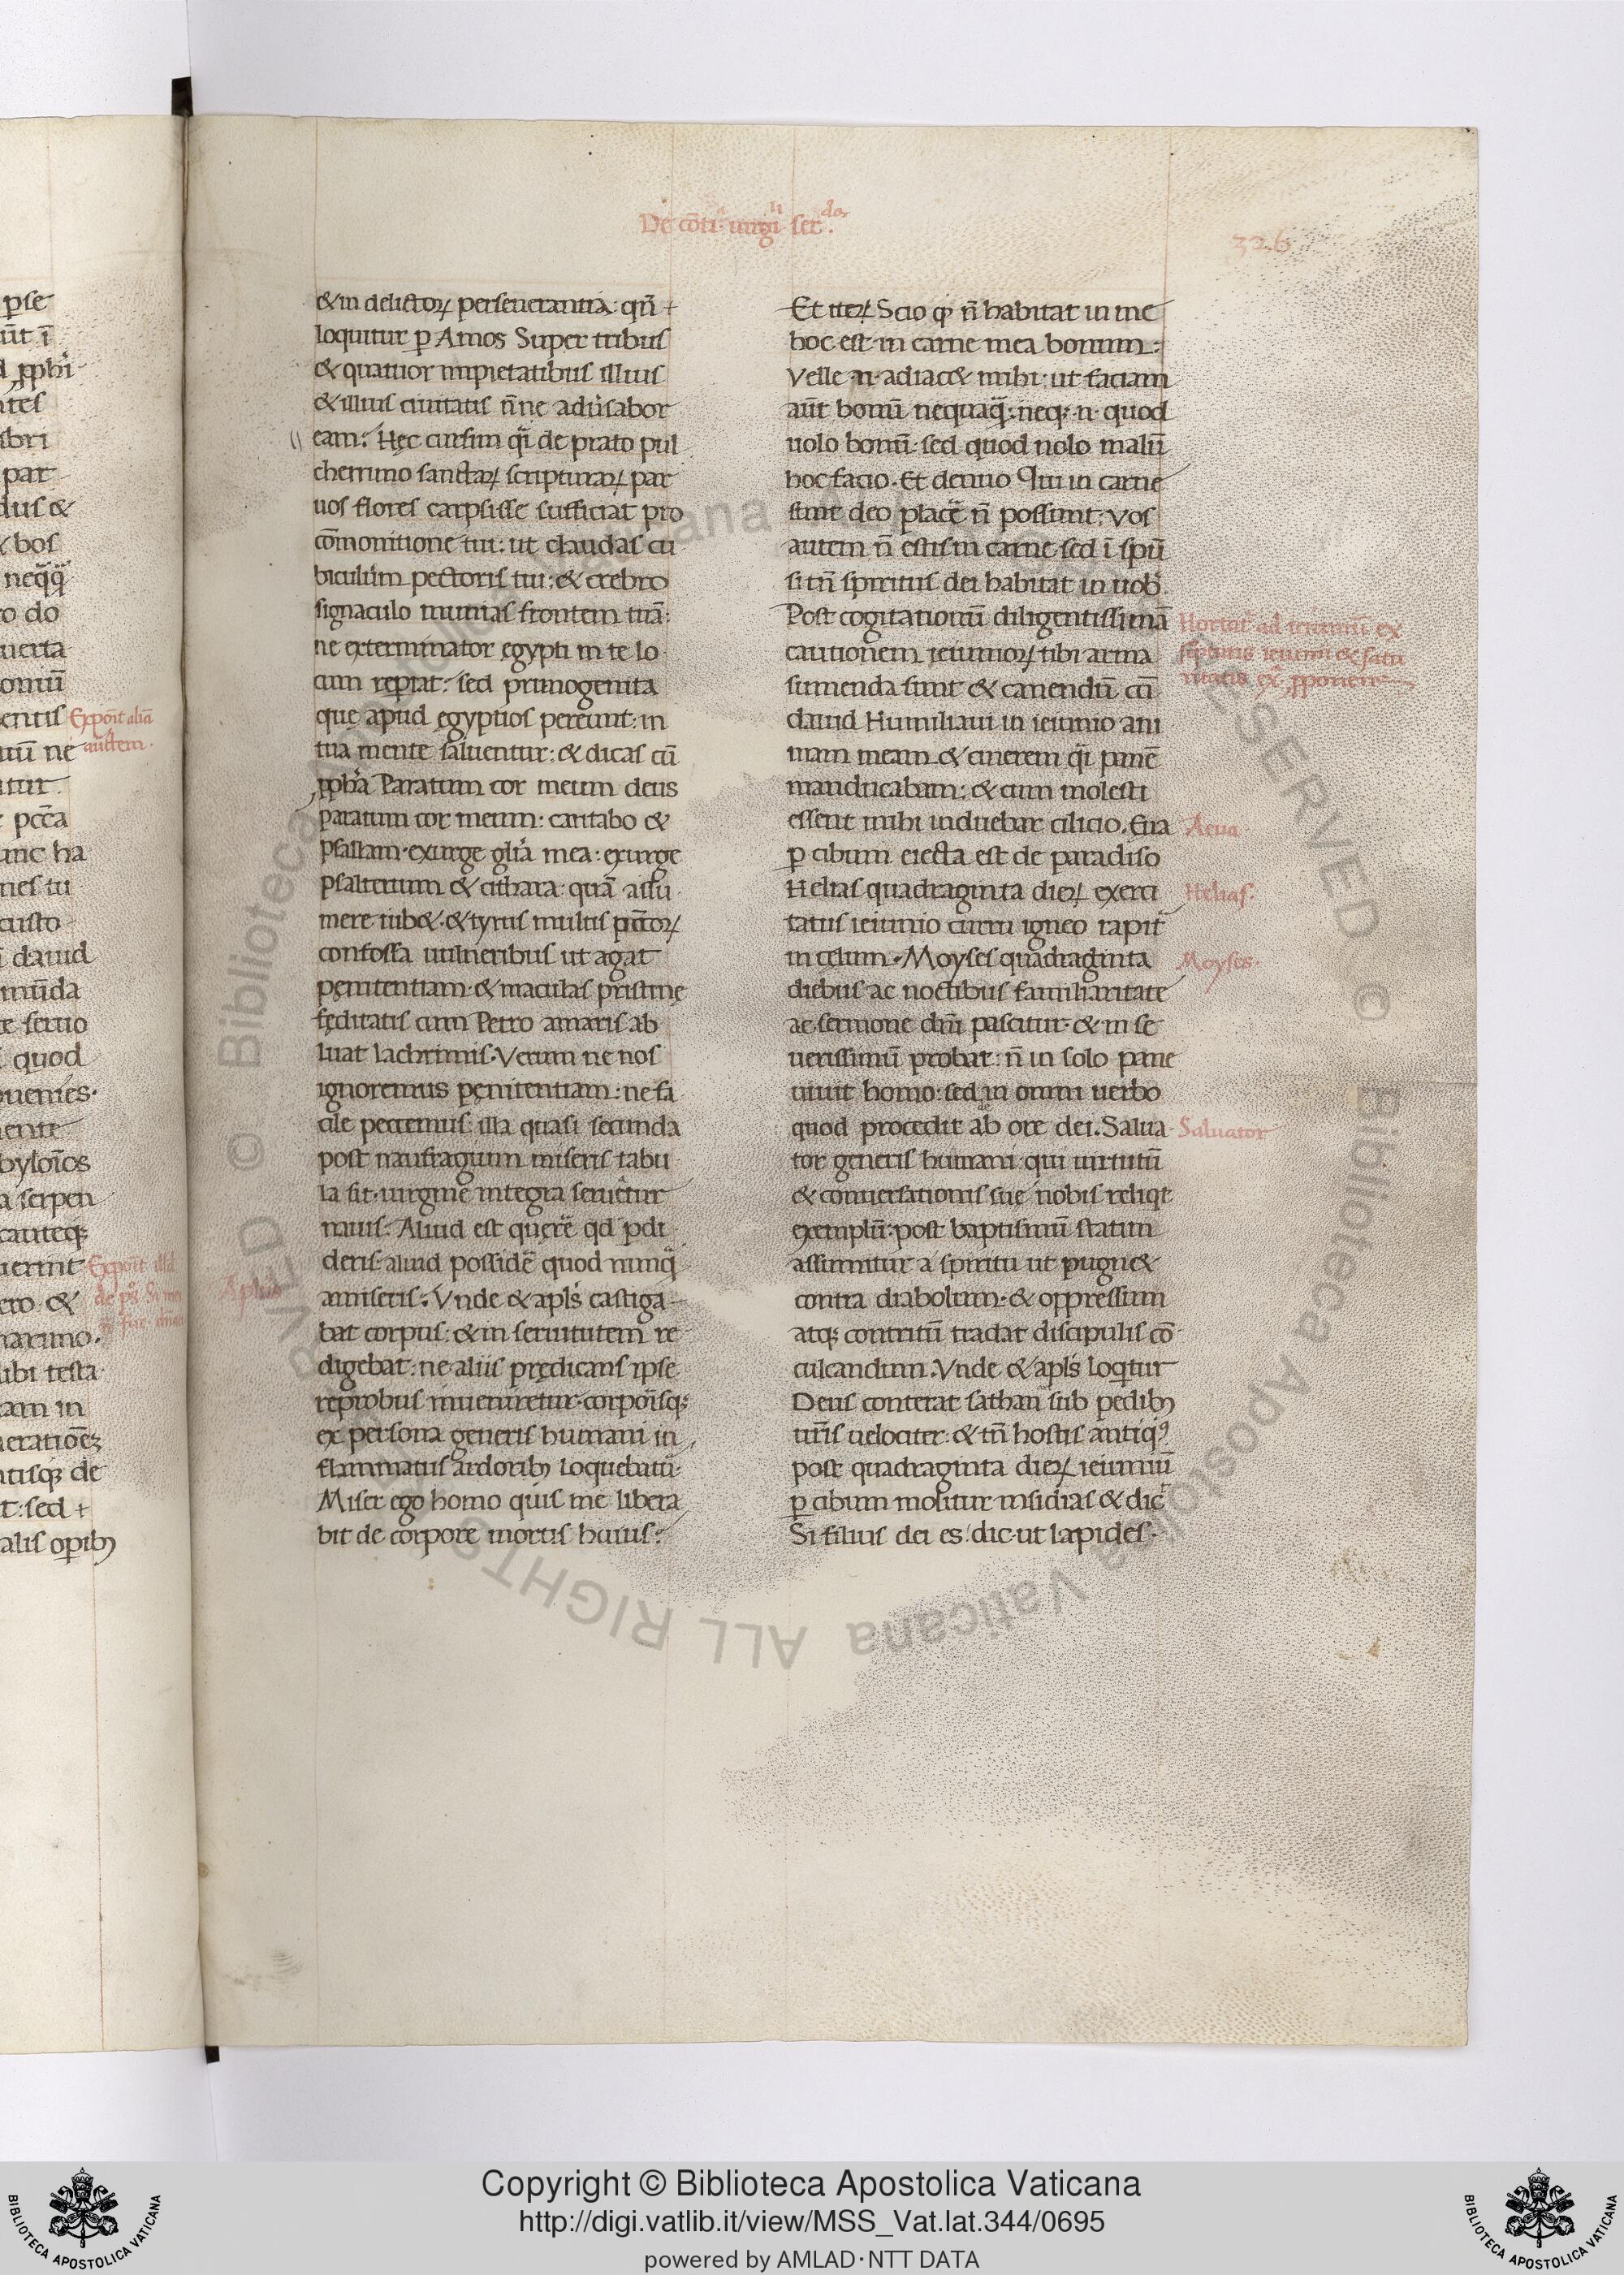 p̱se
ūt ī
d ꝓphī
ntes
ibri
par
dus &
& bos
neq̄q̄
ro do
uerta
omū
entis Expoīt aliā
nū ne auītem.
tur
pcc̄a
unc ha
nes tu
custo
i dauid
mūda
te seruo
i quod
ouenies·
ente
byloīos
a serpen
cauteq;
uerint Expoīt illd̄
ero &
narimo.
libi testa
am in
neratiōēꝫ
ntisq; de
t: sed +
alis op̱ib;
De cōti.ᵃ uirgi.ˡⁱ ser.ᵈᵃ
326
& in delictoꝝ perseuerantia: qn̄ +
loquitur p̱ Amos Super tribus
& quatuor impietatibus illius
& illius ciuitatis n̄ne aduīsabor
eam: Hęc cursim q̄i de prato pul
cherrimo sanctaꝝ scripturaꝝ par
uos flores carpsisse sufficiat pro
cōmonitione tui: ut claudas cu
biculūm pectoris tui: & crebro
signaculo munias frontem tuā:
ne exterminator ęgypti in te lo
cum repīat: sed primogenita
que apud ęgyptios pereunt: in
tua mente saluentur: & dicas cū
ꝓpħa Paratum cor meum deus
paratum cor meum: cantabo &
psallam· exurge glīa mea: exurge
psalterium & cithara: quā assu
mere iub&·& tyrus multis pcc̄toꝝ
confossa uulneribus ut agat
penitentiam· & maculas pristinę
fęditatis cum Petro amaris ab
luat lachrimis· Verum ne nos
ignoremus pęnitentiam: ne fa
cile peccemus: illa quasi secunda
post naufragium miseris tabu
la sit· uirgine integra seruetur
nauis: Aliud est querē qd̄ p̱di
deris· aliud possidē quod nunq̄
amiseris: Vnde & apl̄s castiga
bat corpus: & in seruitutem re
digebat: ne aliis prędicans ipse
reprobus inueniretur· corpoīsq;
ex persona generis humani in
flammatus ardorib; loquebatū·
Miser ego homo quis me libera
bit de corpore mortis huius:
Aplus
Et iteꝝ Scio qꝫ n̄ habitat in me
hoc est in carne mea bonum:
Velle ·n· adiac& mihi: ut faciam
aūt bonū nequaq̄: neq; ·n· quod
uolo bonū· sed quod nolo malū
hoc facio. Et denuo Qui in carne
sunt deo placē n̄ possunt: Vos
autem n̄ estis in carne sed ī spū
si tn̄ spiritus dei habitat in uob̄.
Post cogitationū diligentissimā
cautionem ieiunioꝝ tibi arma
sumenda sunt & canendū cū
dauid Humiliaui in ieiunio ani
mam meam & cinerem q̄i panē
manducabam: & cum molesti
essent mihi induebar cilicio. Eua
p̱ cibum eiecta est de paradiso
Helias quadraginta dieꝝ exerci
tatus ieiunio curru igneo rapit̄
in celum. Moyses quadraginta
diebus ac noctibus familiaritate
ac sermone dn̄i pascitur· & in se
uerissimū probat: n̄ in solo pane
uiuit homo: sed in omni uerbo
quod procedit ab ore dei. Salua
tor generis humani: qui uirtutū
& conuersationis sue nobis reliqt
exemplū: post baptismū statim
assumitur a spiritu ut pugn&
contra diabolum· & oppressum
atq; contritū tradat discipulis cō
culcandum. Vnde & apl̄s loq̄tur
Deus conterat sathan̄ sub pedib;
ur̄is uelociter: & tn̄ hostis antiqꝰ
post quadraginta dieꝝ ieiuniū
p̱ cibum molitur insidias & dic̄
Si filius dei es: dic· ut lapides·
Hortat̄ ad ieiuniū ex
Aeua
Helias.
Moyses.
Saluator
© Biblioteca Apostolica Vaticana ALL RIGHTS RESERVED
BIBLIOTECA APOSTOLICA VATICANA
Copyright © Biblioteca Apostolica Vaticana
http://digi.vatlib.it/view/MSS_Vat.lat.344/0695
powered by AMLAD·NTT DATA
BIBLIOTECA APOSTOLICA VATICANA